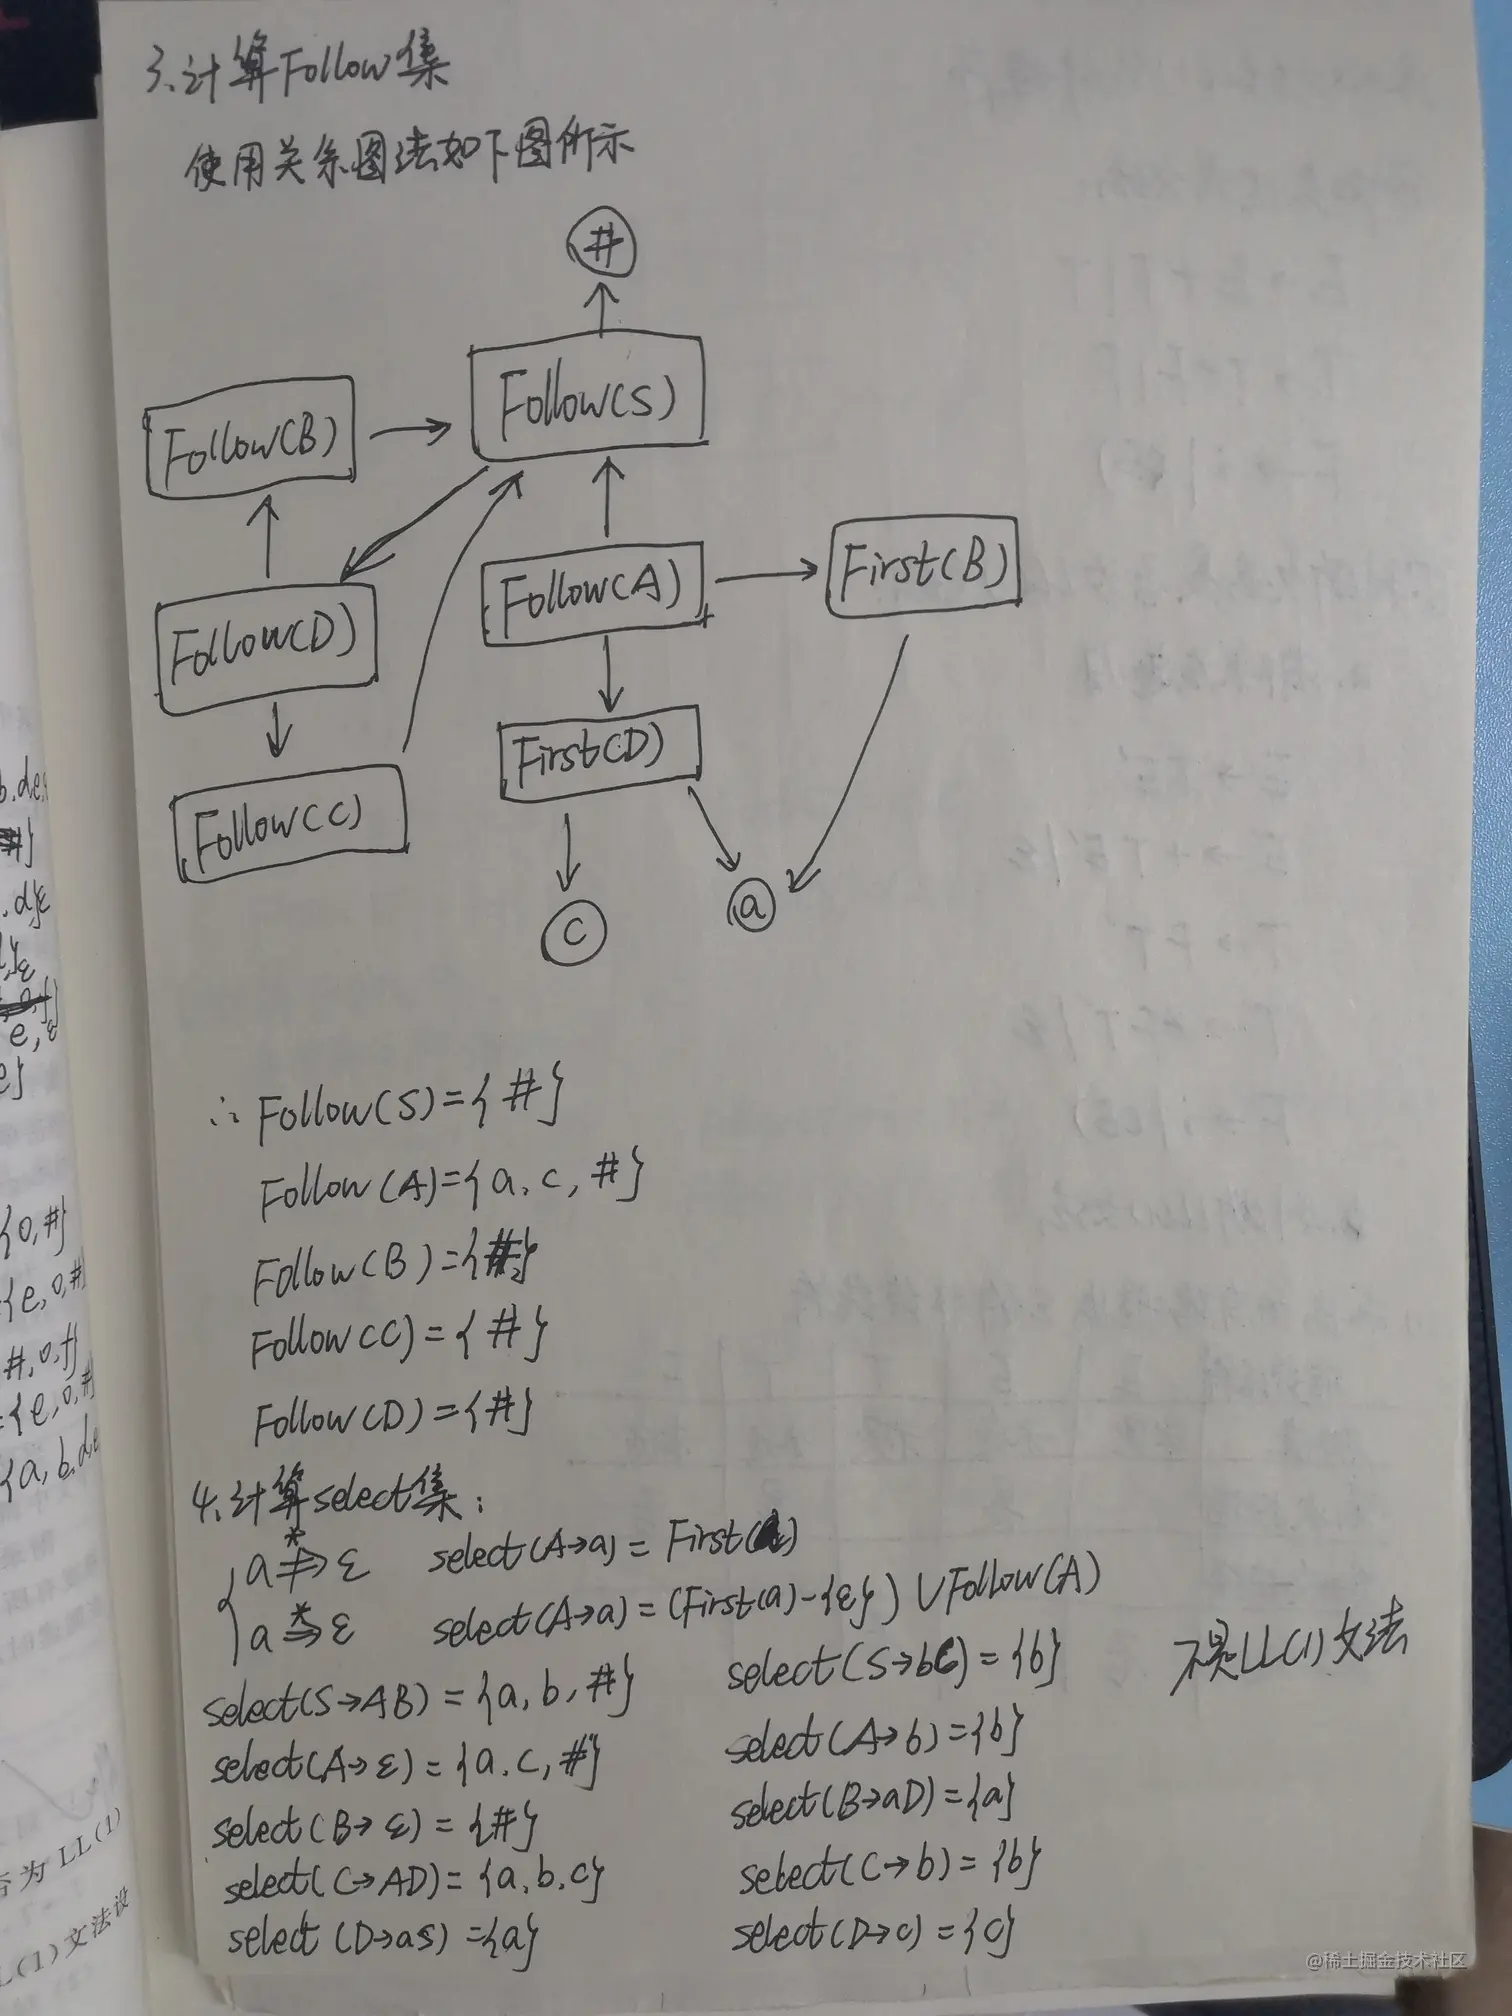 3.计算Follow集
使用关系图法如下图所示
#
Follow(S)
Follow(B)
Follow(A)
First(B)
Follow(D)
First(D)
Follow(C)
c
a
∴ Follow(S)={#}
Follow(A)={a,c,#}
Follow(B)={#}
Follow(C)={#}
Follow(D)={#}
4.计算select集:
a *⇏ ε select(A→a) = First(a)
a *⇒ ε select(A→a) = (First(a)-{ε}) ∪Follow(A)
select(S→AB) = {a,b,#} select(S→bC) = {b} 不是LL(1)文法
select(A→ε) = {a,c,#} select(A→b)={b}
select(B→ε) = {#} select(B→aD)={a}
select(C→AD)={a,b,c} select(C→b)={b}
select(D→aS)={a} select(D→c)={c}
b.de,
#}
.d,ε
e,ε
e}
{0,#}
{e,0,#
#,0,f}
={e,0,#
{a,b,d,e
为 LL(1)
L(1)文法设
@稀土掘金技术社区